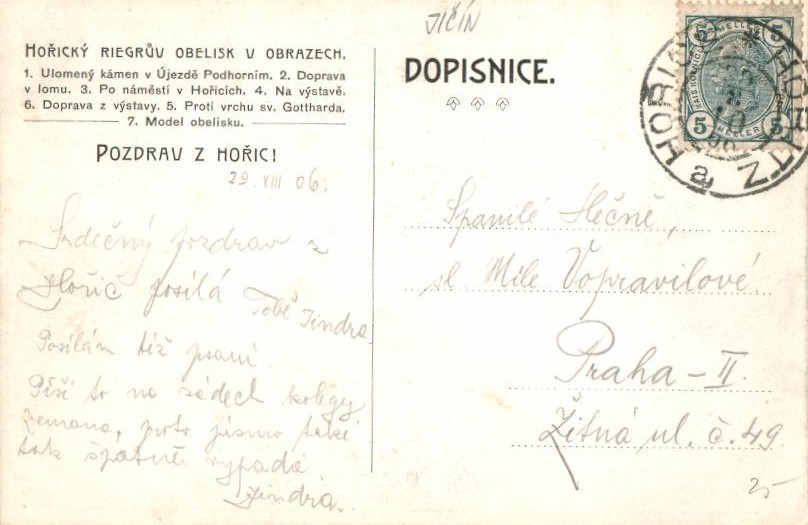 HOŘICKÝ RIEGRŮV OBELISK V OBRAZECH.
1. Ulomený kámen v Újezdě Podhorním. 2. Doprava
v lomu. 3. Po náměstí v Hořicích. 4. Na výstavě.
6. Doprava z výstavy. 5. Proti vrchu sv. Gottharda.
7. Model obelisku.
POZDRAV Z HOŘIC!
29. VIII 06.
Srdečný pozdrav z
Hořic posílá
Tobě Jindra
Posílám též psaní.
Píši to na zádech kolegy
Zemana, proto písmo také
tak špatně vypadá
Jindra.
JIČÍN
DOPISNICE.
5 5
HELLER
5 HELLER 5
HOŘICE
HORITZ
a
Spanilé Slečně,
sl. Mile Vopravilové.
Praha – II.
Žitná ul. č. 49
25